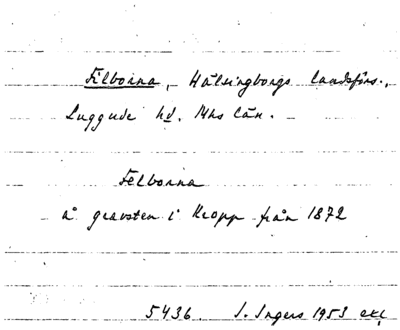 Filborna, Hälsingborgs landsförs.,
Luggude hd. Mhs län.
Felborna
å gravsten i Kropp från 1872
5436. I. Ingers 1953 exc